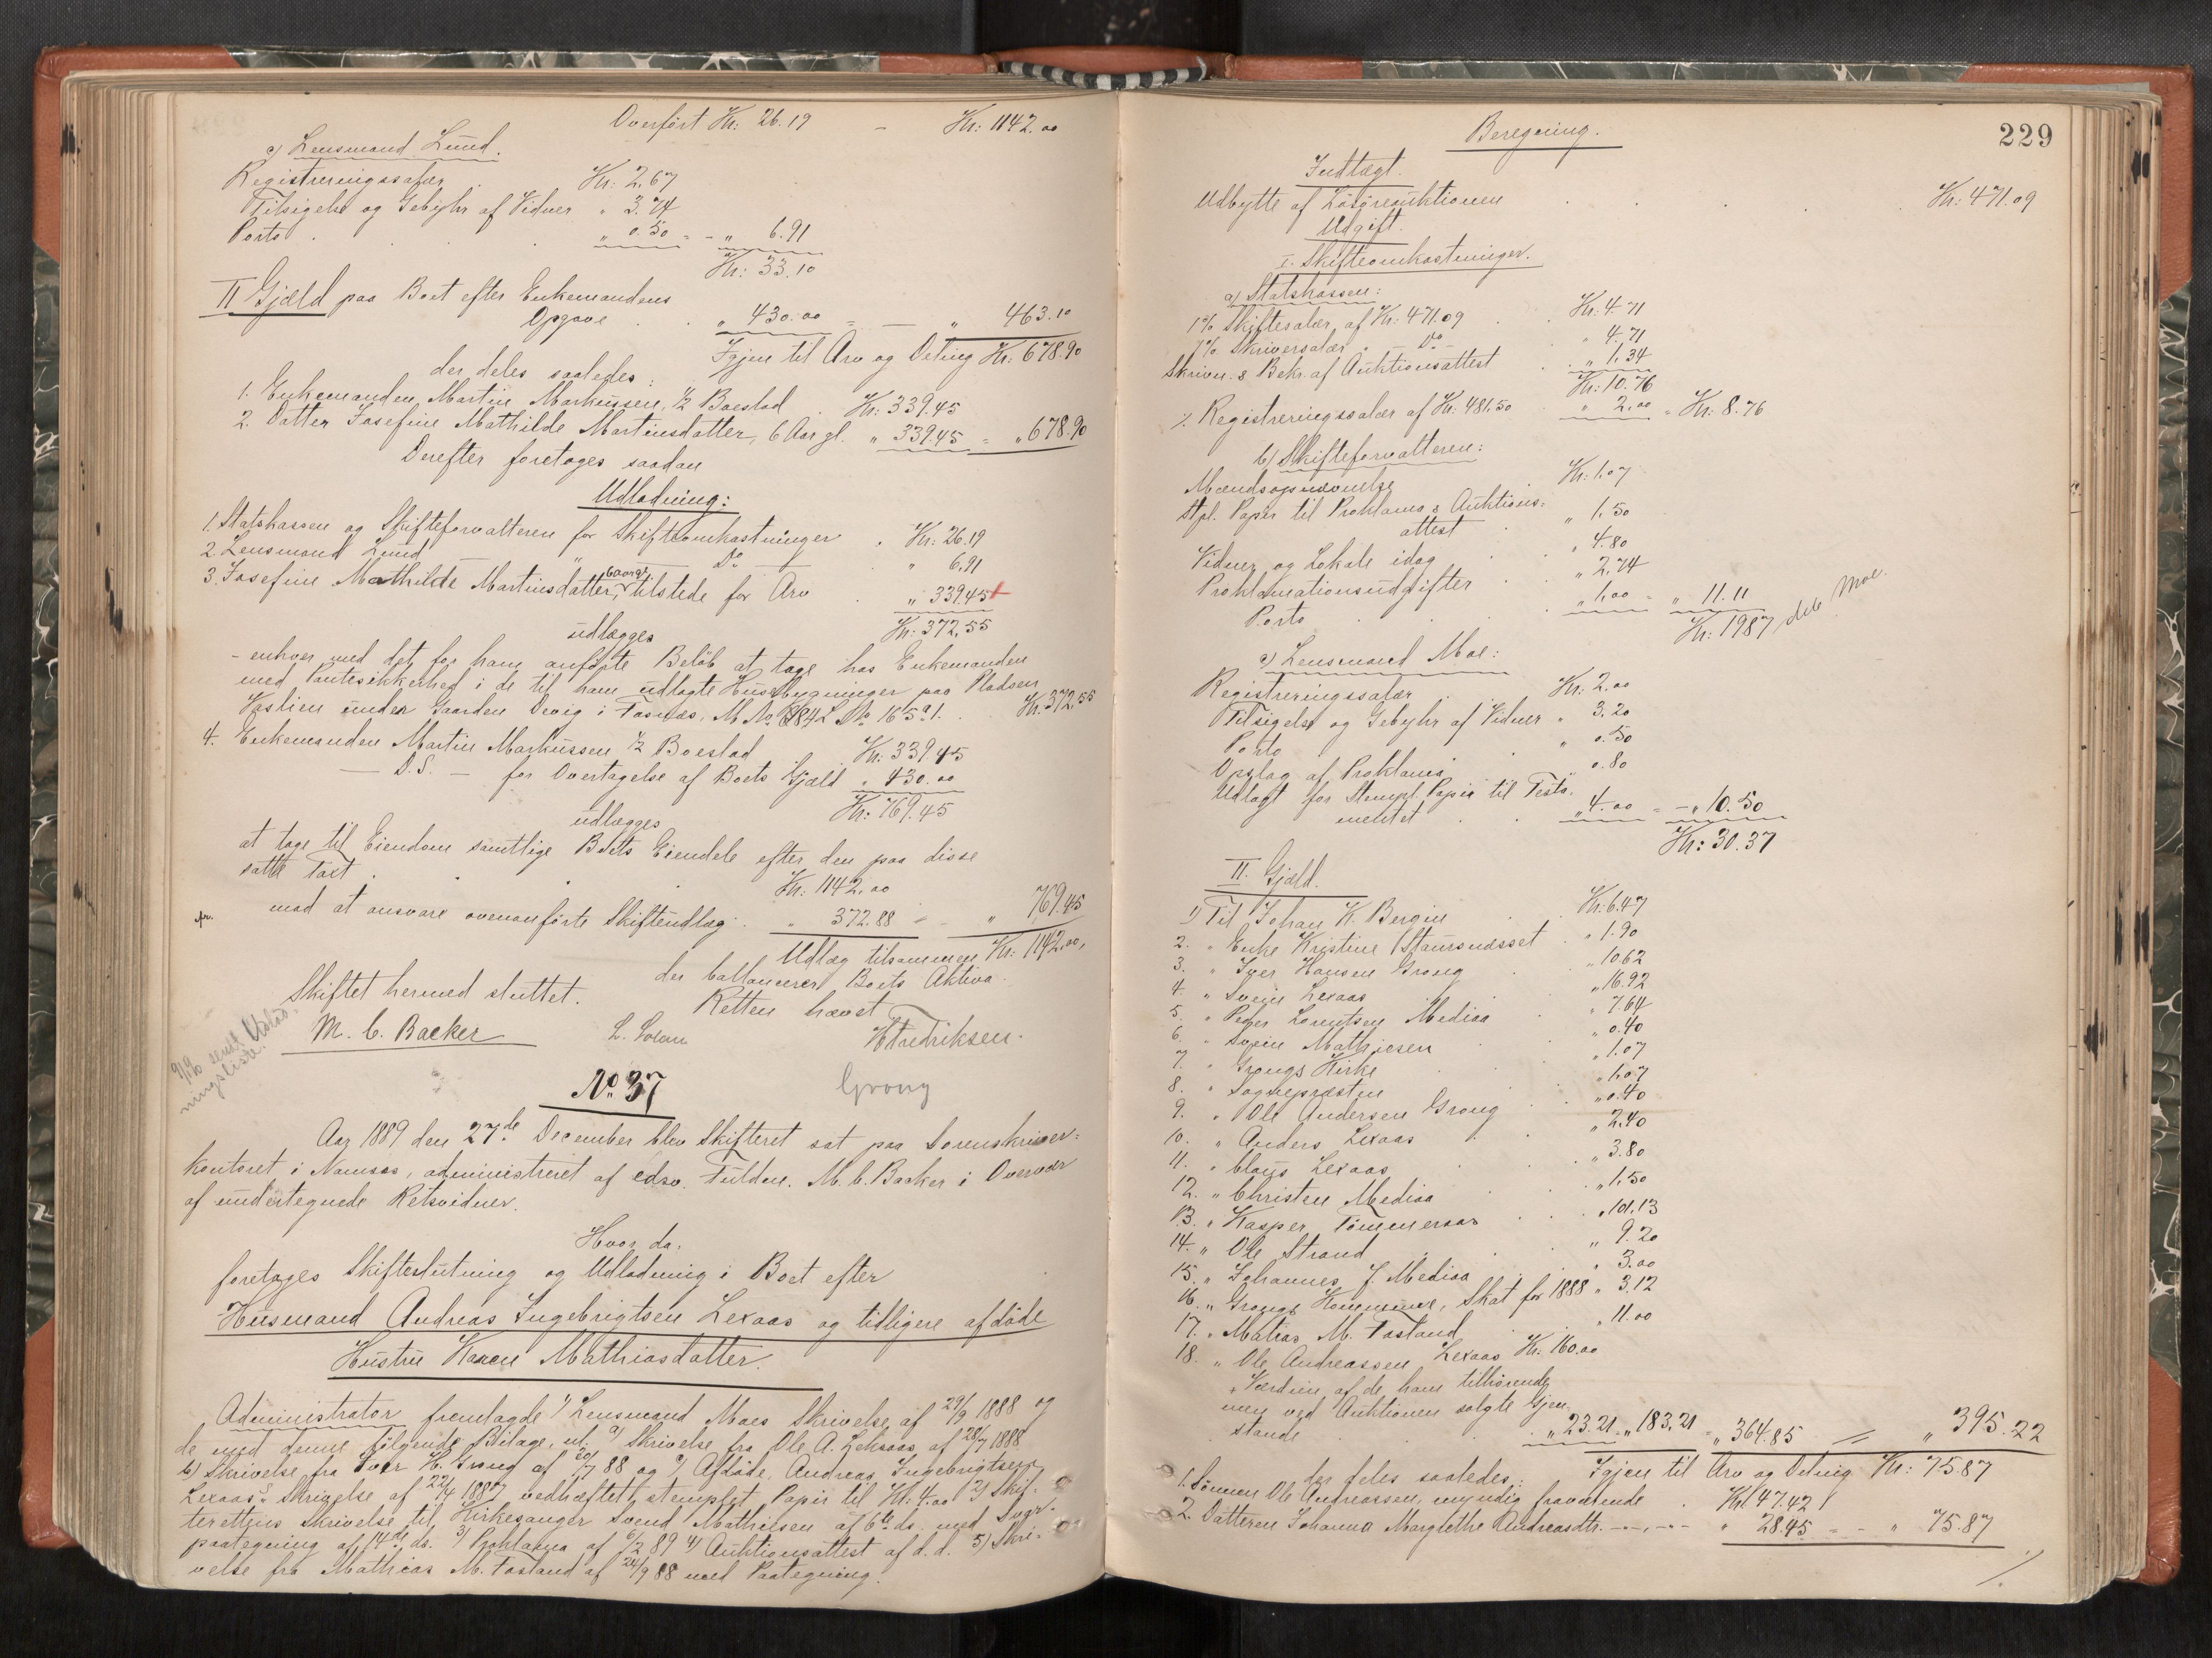 Overført Kr: 26.19 — Kr: 1142.00
c) Lensmand Lund.
Registreringssalær . Kr: 2.67
Tilsigelse og Gebyhr af Vidner " 3.74
Porto . . . " 0.50 = — " 6.91
Kr: 33.10
II Gjæld paa Boet efter Enkemandens
Opgave . . " 430.00 = — " 463.10
Igjen til Arv og Deling Kr: 678.90
der deles saaledes:
1. Enkemanden, Martin Markussen, 1/2 Boeslod . Kr: 339.45
2. Datter Josefine Mathilde Martinsdatter, 6 Aar gl. " 339.45 = " 678.90
Derefter foretoges saadan
Udlodning:
1. Statskassen og Skifteforvalteren for Skifteomkostninger . Kr: 26.19
2. Lensmand Lund — " — Do — " 6.91
3. Josefine Mathilde Martinsdatter, 6 Aar gl. tilstede for Arv . " 339.45
Kr: 372.55
udlægges
- enhver med det for ham anførte Beløb at tage hos Enkemanden
med Pantesikkerhed i de til ham udlagte Husebygninger paa Pladsen
under Gaarden Devig i Fosnæs, M No 884 L No 165 a 1. . Kr. 372.55
4. Enkemanden Martin Markussen 1/2 Boeslod . Kr: 339.45
— D.S. — for Overtagelse af Boets Gjæld " 430.00
Kr: 769.45
udlægges
at tage til Eiendom samtlige Boets Eiendele efter den paa disse
satte Taxt . . . Kr: 1142.00
mod at ansvare ovenanførte Skifteudlæg . " 372.88 = — " 769.45
Udlæg tilsammen Kr: 1142.00,
der ballancerer Boets Aktiva.
Skiftet hermed sluttet. Retten hævet
M. C. Backer HFredriksen.
No 37 Grong
Aar 1889 den 27de December blev Skifteret sat paa Sorenskriver-
kontoret i Namsos, administreret af edsv. Fuldm. M. C. Backer i Overvær
af undertegnede Retsvidner.
Hvor da:
foretoges Skifteslutning og Udlodning i Boet efter
Husmand Andreas Ingebrigtsen Lexaas og tidligere afdøde
Hustru Karen Mathiasdatter.
Administrator fremlagde 1) Lensmand Moes Skrivelse af 29/9 1888 og
de med denne følgende Bilage, nl. a) Skrivelse fra Ole A. Leksaas af 28/7 1888
b) Skrivelse fra Iver H. Grong af 20/7 88 og c) Afdøde, Andreas Ingebrigtsen
Lexaas's Skrivelse af 22/4 1887 vedhæftet stemplet Papir til Kr: 4.00 2) Skif-
terettens Skrivelse til Kirkesanger Svend Mathisen af 6te ds. med Svar-
paategning af 14de ds. 3) Proklama af 6/2 89 4) Auktionsattest af d.d. 5) Skri-
velse fra Mathias M. Fosland af 24/9 88 med Paategning.
229
Beregning.
Indtægt.
Udbytte af Løsøreauktionen . . . . Kr: 471.09
Udgift.
I. Skifteomkostninger.
a) Statskassen:
1% Skiftesalær af Kr: 471.09 . Kr: 4.71
1% Skriversalær " — Do — " 4.71
Skrivn. & Bekr. af Auktionsattest . " 1.34
Kr: 10.76
٪ Registreringssalær af Kr: 481.50 . " 2.00 = Kr: 8.76
b) Skifteforvalteren:
Mændsopnævnelse . Kr: 1.07
Stpl. Papir til Proklama & Auktions-
attest " 1.50
Vidner og Lokale idag . " 4.80
Proklamationsudgifter . " 2.74
Porto . . . " 1.00 = " 11.11
Kr: 19.87 Moe.
c) Lensmand Moe:
Registreringssalær . Kr: 2.00
Tilsigelse og Gebyhr af Vidner " 3.20
Porto . . " 0.50
Opslag af Proklama . 0.80
Udlagt for Stempl. Papir til Testa-
mentet . . " 4.00 = — " 10.50
Kr: 30.37
II. Gjæld.
1) Til Johan K. Bergin . Kr: 6.47
2. " Enke Kristine Staursnæsset . " 1.90
3. " Iver Hansen Grong . " 10.62
4. " Svein Lexaas . " 16.92
5. " Peder Lorntsen Mediaa . " 7.64
6. " Svein Mathiesen . " 0.40
7. " Grongs Kirke . " 1.07
8. " Sognepræsten . " 1.07
9. " Ole Andersen Grong . " 0.40
10. " Anders Lexaas . " 2.40
11. " Claus Lexaas . " 3.80
12. " Christen Mediaa . " 1.50
13. " Kasper Tømmeraas . " 101.13
14. " Ole Strand . " 9.20
15. " Johannes J. Mediaa . " 3.00
16. " Grongs Kommune, Skat for 1888 " 3.12
17. " Matias M. Fosland . " 11.00
18. " Ole Andreassen Lexaas Kr: 160.00
" Værdien af de ham tilhørende
men ved Auktionen solgte Gjen-
stande . . " 23.21 = " 183.21 = " 364.85 = " 395.22
Igjen til Arv og Deling Kr: 75.87
der deles saaledes:
1. Sønnen Ole Andreassen, myndig fraværende . Kr: 47.42
2. Datteren Johanna Margrethe Andreasdtr. —„— " 28.45 = — " 75.87